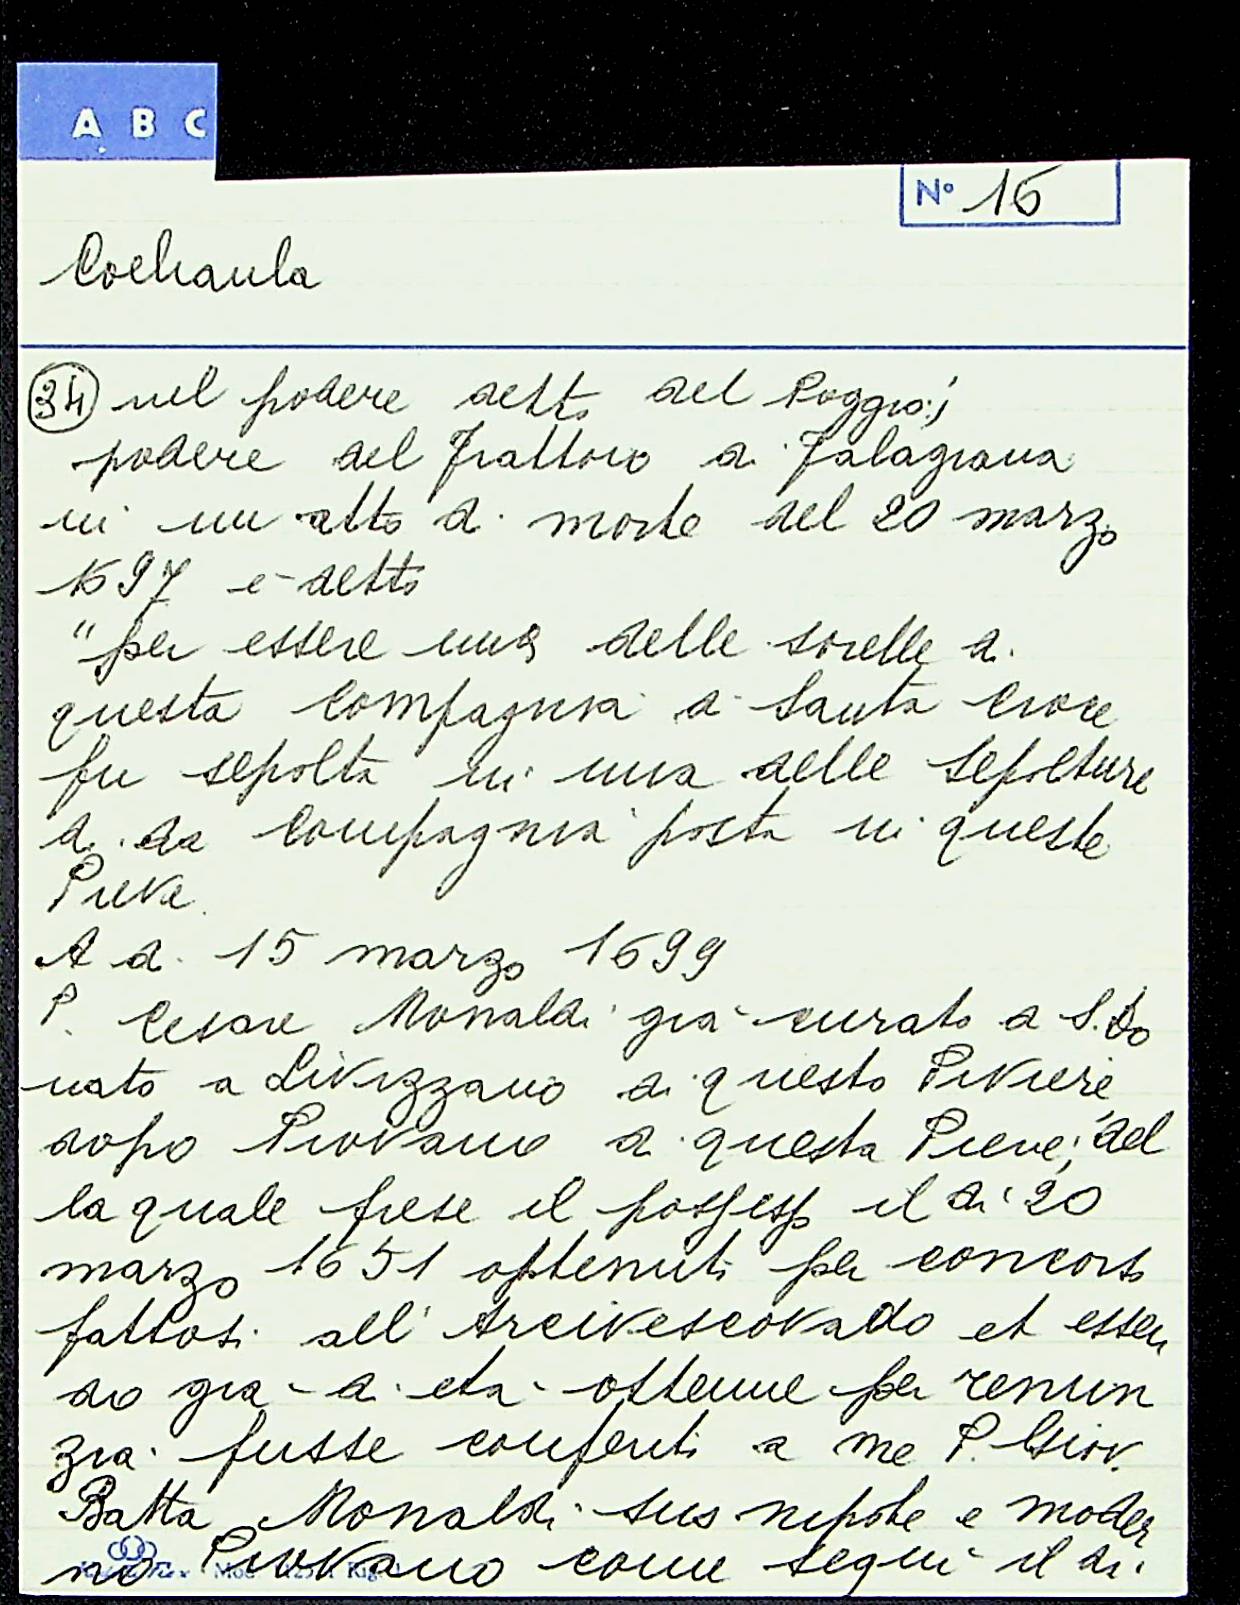 A B C
N° 16
Coeliaula
34 nel podere detto del Poggio;
podere del Frattoio di Falagiana
in un atto di morte del 20 marzo
1697 è detto
"per essere una delle sorelle di
questa Compagnia di Santa Croce
fu sepolta in una delle sepolture
di da Compagnia posta in questa
Pieve.
A dì 15 marzo 1699
P. Cesare Monaldi già curato a S. Do
nato a Livizzano di questo Piviere
dopo Piovano di questa Pieve, del
la quale prese il possesso il dì 20
marzo 1651 optenuti per concorso
fattosi all' Arcivescovado et essen
do già di età ottenne per renun
zia fusse conferiti a me P. Giov.
Batta Monaldi suo nipote e moder
no Piovano come seguì il dì.